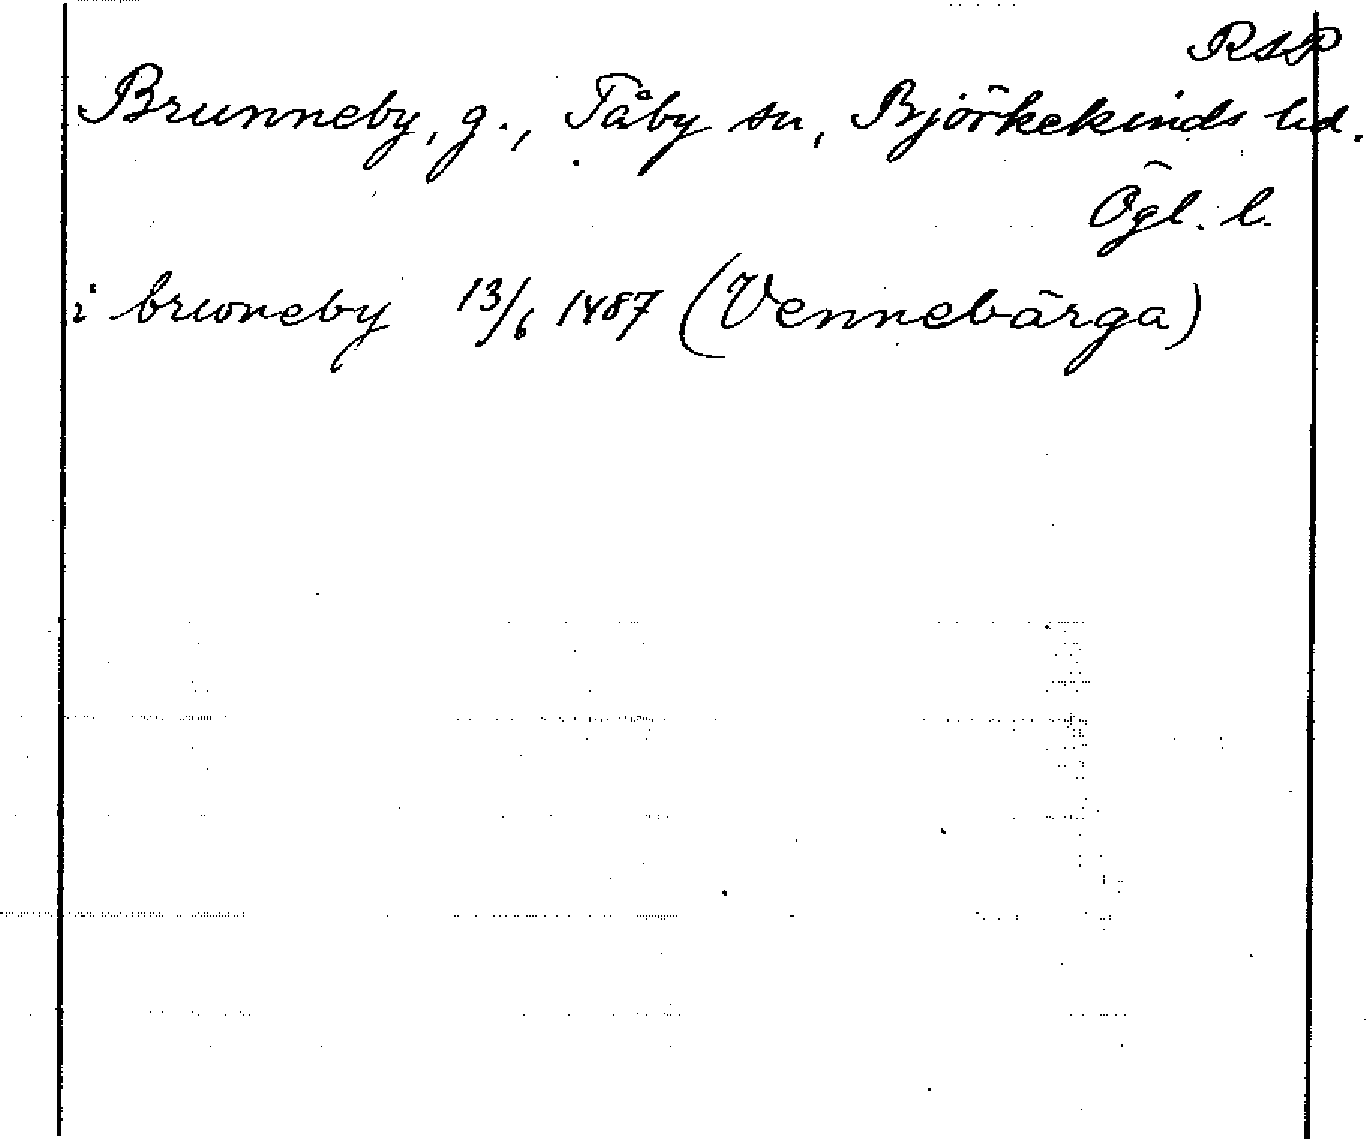 RAP
Brunneby, g., Tåby sn, Björkekinds hd.
Ögl. l.
i brwneby 13/6 1487 (Vennebärga)